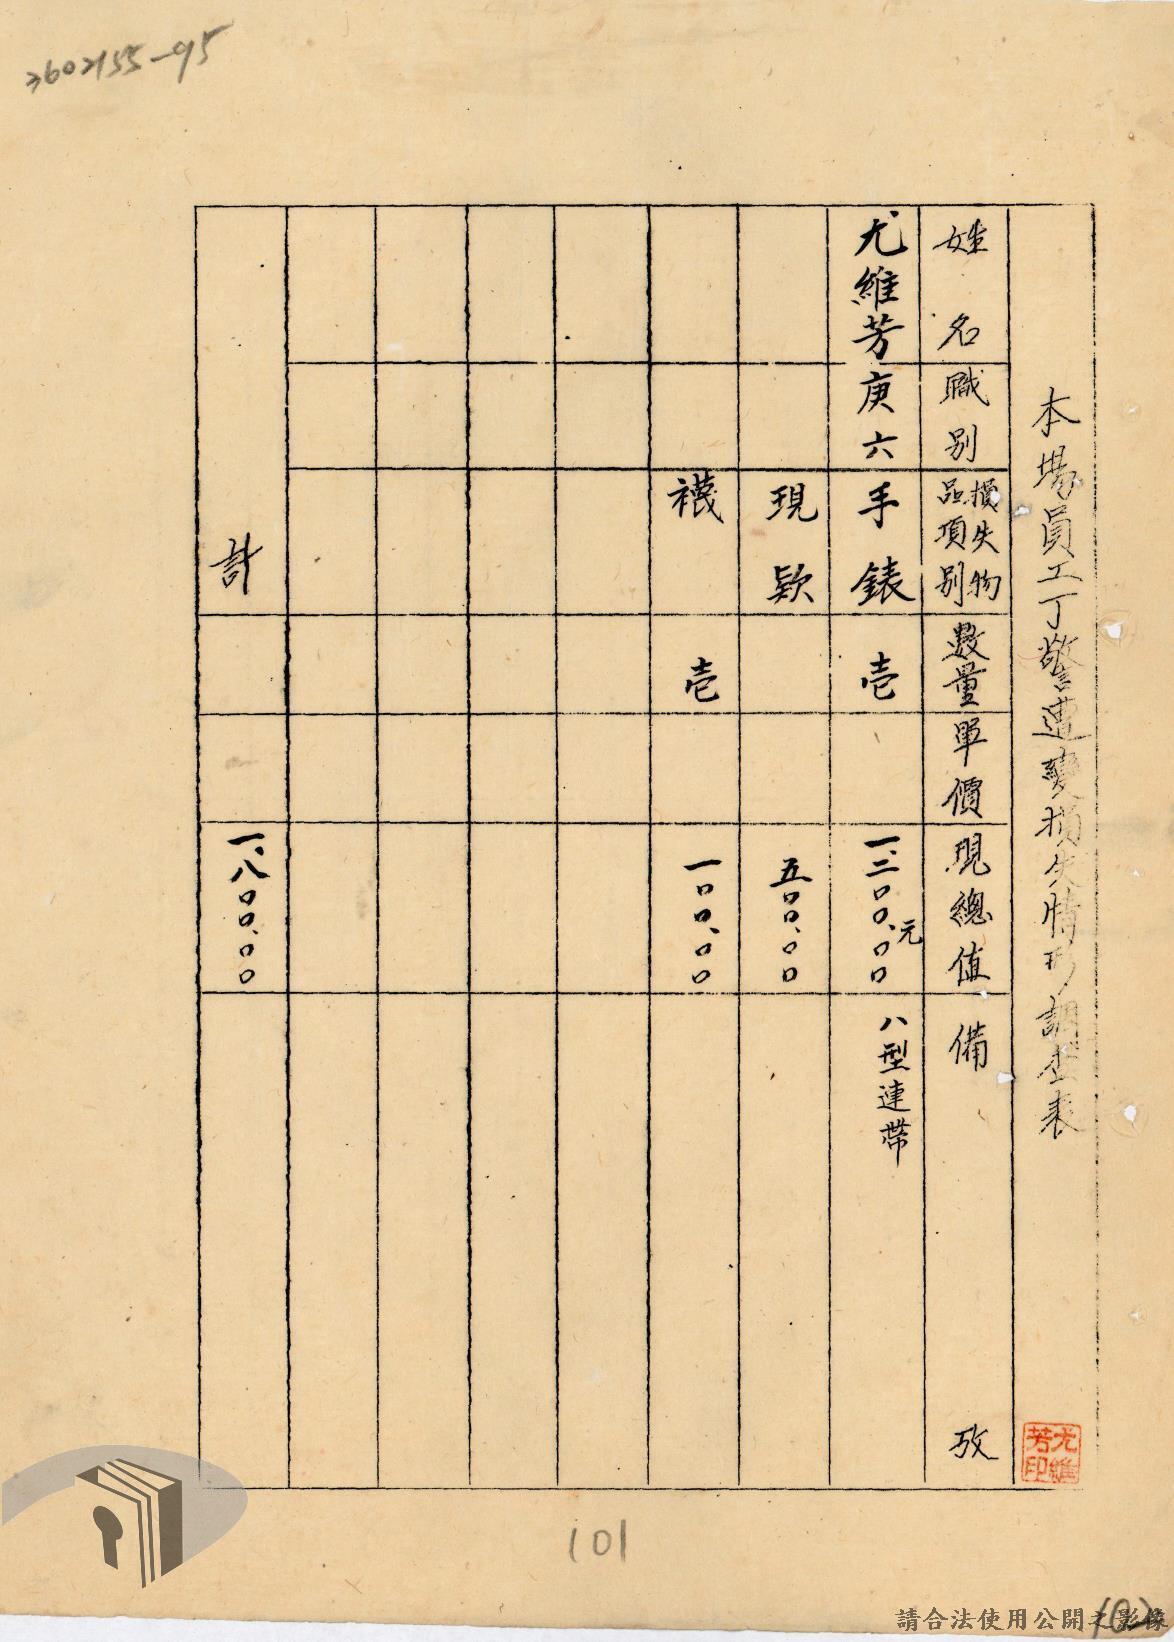 3602155-95
本場員工丁警遭變損失情形調查表
尤維芳印
姓名 職別 損失物品項別 數量 單價 現總值 備攷
尤維芳 庚六 手錶 壱 一、三〇〇.〇〇元 八型連帶
現欵 五〇〇.〇〇
襪 壱 一〇〇.〇〇
計 一、八〇〇.〇〇
101
102
請合法使用公開之影像